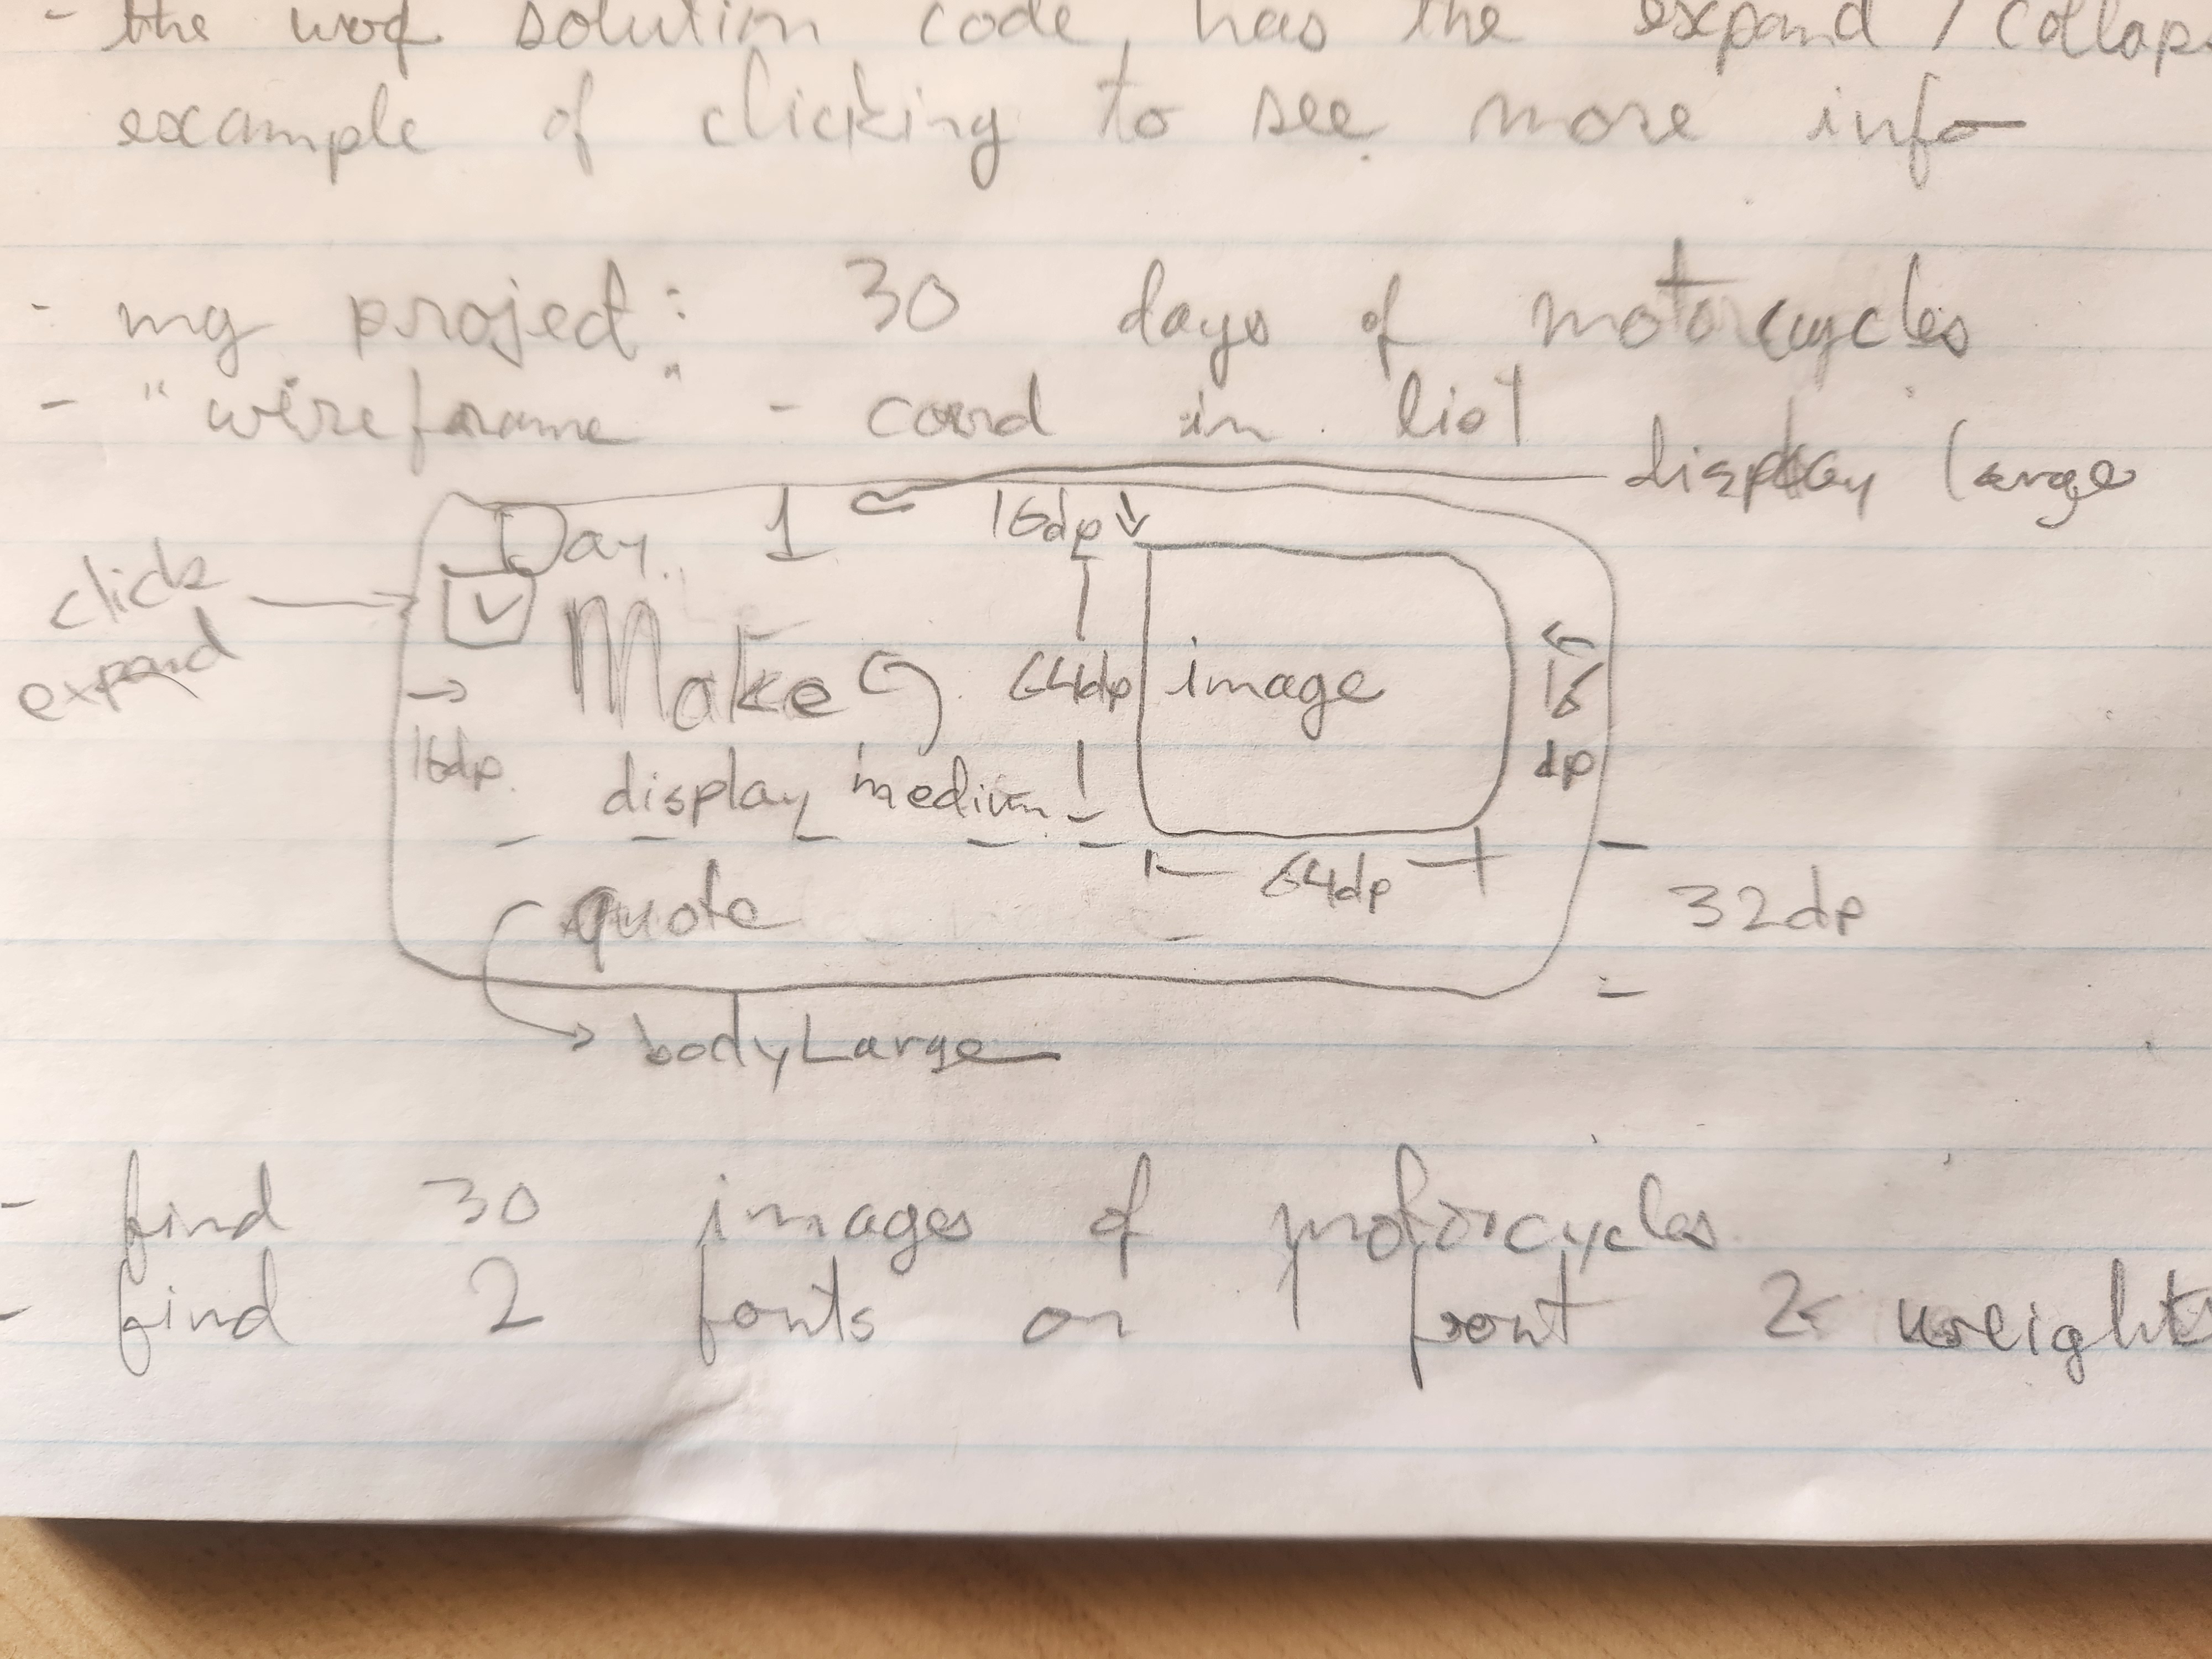 - the woof solution code, has the expand / collaps
example of clicking to see more info
- my project: 30 days of motorcycles
- "wireframe" - card in list
display large
Day 1
16dp
click
expand
Make
64dp
image
16
dp
16dp
display medium
64dp
quote
32dp
bodyLarge
- find 30 images of motorcycles
- find 2 fonts or 1 font 2 weights